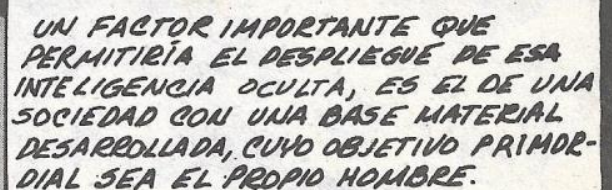 UN FACTOR IMPORTANTE QUE
PERMITIRÍA EL DESPLIEGUE DE ESA
INTELIGENCIA OCULTA, ES EL DE UNA
SOCIEDAD CON UNA BASE MATERIAL
DESARROLLADA, CUYO OBJETIVO PRIMOR-
DIAL SEA EL PROPIO HOMBRE.